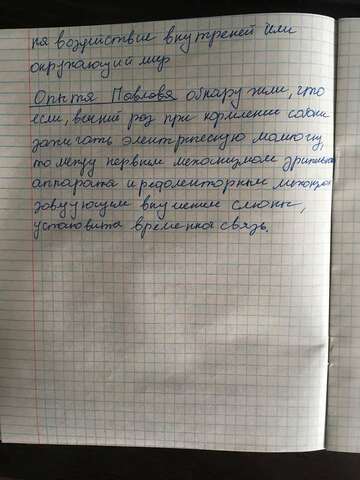 на воздействие внутреней или
окружающий мир
Опыты Павлова обнаружили, что
если, всякий раз при кормлении собаки
зажигать электрическую лампочку,
то между нервным механизмом зрительн
аппарата и
выделением слюны,
установится временная связь.